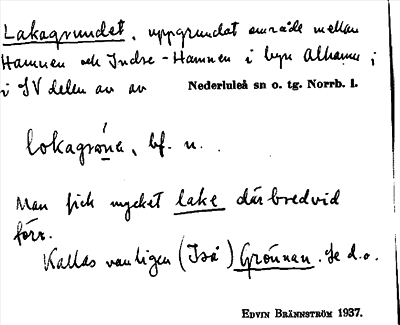 Lakagrundet, uppgrundat område mellan
Hamnen och Indre-Hamnen i byn Alhamn;
i SV delen av av Nederluleå sn o. tg. Norrb. l.
lokagróna, bf. n.
Man fick mycket lake därbredvid
förr.
Kallas vanligen (Iså) Grönnan. Se d.o.
EDVIN BRÄNNSTRÖM 1937.